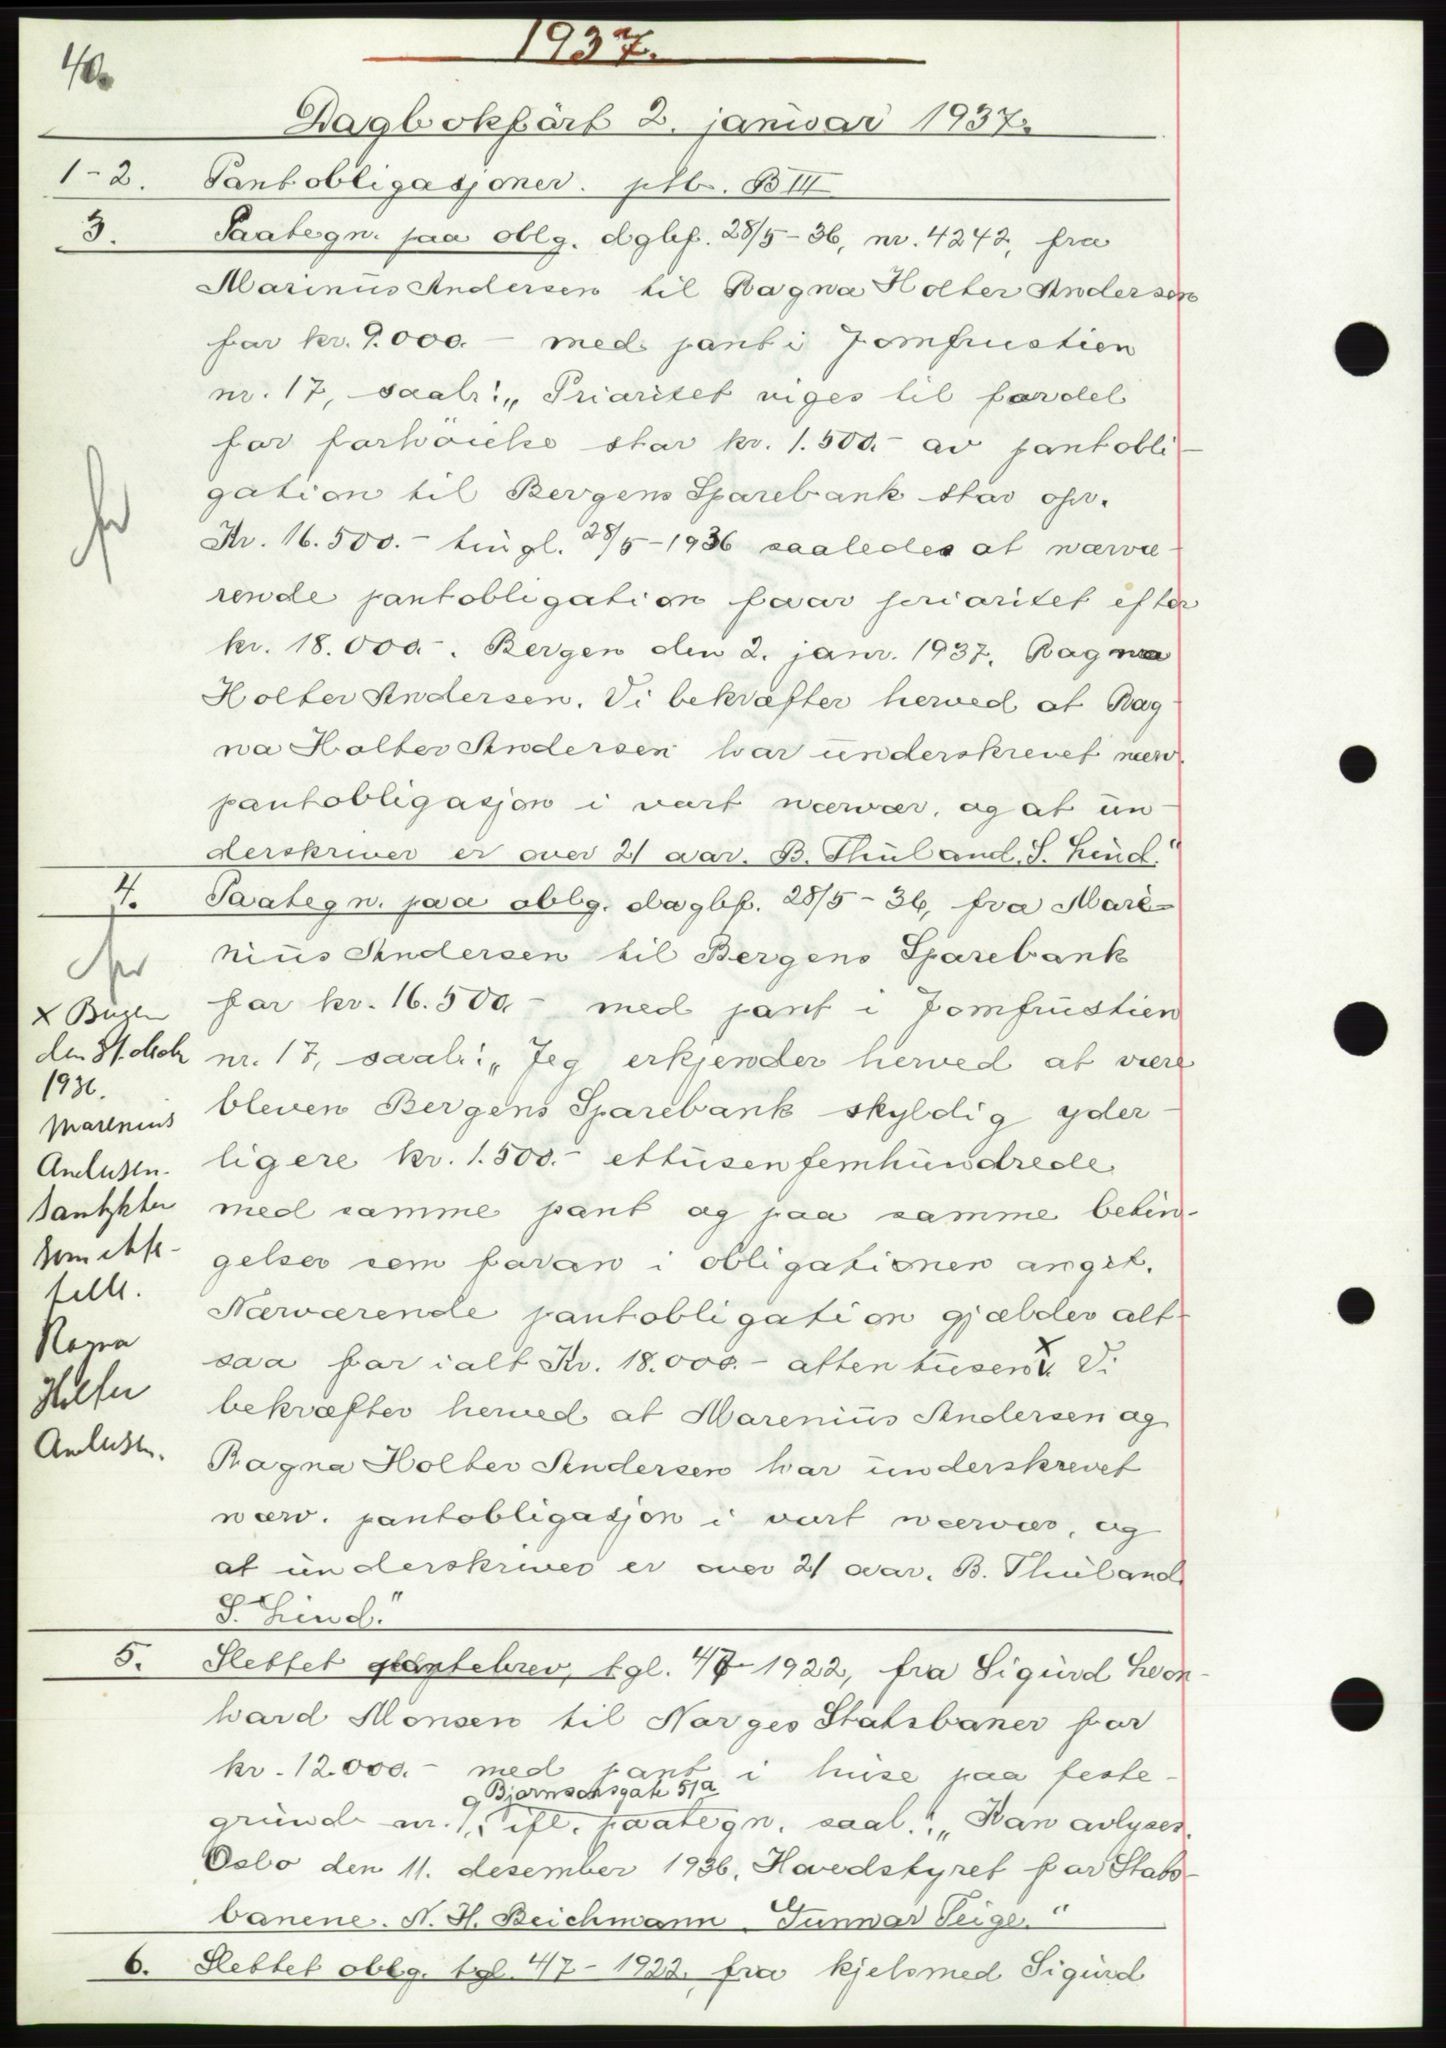 40.
1937.
Dagbokført 2. januar 1937.
1-2. Pantobligasjoner. ptb. B III
3. Paategn. paa oblg. dglf. 28/5-36, nr. 4242, fra
Marinus Andersen til Ragna Holter Andersen
for kr. 9.000.- med pant i Jomfrustien
nr. 17, saal.: „Prioritet viges til fordel
for forhöielse stor kr. 1.500.- av pantobli-
gation til Bergens Sparebank stor opr.
Kr. 16.500.- tingl. 28/5-1936 saaledes at nærvæ-
rende pantobligation faar prioritet efter
kr. 18.000.-. Bergen den 2. janr. 1937. Ragna
Holter Andersen. Vi bekræfter herved at Rag-
na Holter Andersen har underskrevet nærv.
pantobligasjon i vort nærvær, og at un-
derskriver er over 21 aar. B. Thuland. S. Lind."
4. Paategn. paa oblg. dagbf. 28/5-36, fra Mare-
nius Andersen til Bergens Sparebank
for kr. 16.500.- med pant i Jomfrustien
nr. 17, saal.: „Jeg erkjender herved at være
bleven Bergens Sparebank skyldig yder-
ligere kr. 1.500.- ettusenfemhundrede
med samme pant og paa samme betin-
gelser som foran i obligationen angit.
Nærværende pantobligation gjælder alt-
saa for ialt Kr. 18.000.- atten tusen x. Vi
bekræfter herved at Marenius Andersen og
Ragna Holter Andersen har underskrevet
nærv. pantobligasjon i vort nærvær, og
at underskriver er over 21 aar. B. Thuland.
S. Lind."
x Bergen
den 31. desbr
1936.
Marenius
Andersen.
Samtykker
som ekte-
felle.
Ragna
Holter
Andersen.
5. Slettet gjeldsbrev, tgl. 4/7-1922, fra Sigurd Leon-
hard Monsen til Norges Statsbaner for
kr. 12.000.- med pant i huse paa feste-
Bjørnsonsgate 51a
grund nr. 1, ifl. paategn. saal.: „Kan avlyses.
Oslo den 11. desember 1936. Hovedstyret for Stats-
banene. N. H. Beichmann. Gunnar Teige."
6. Slettet oblg. tgl. 4/7-1922, fra kjelsmed Sigurd